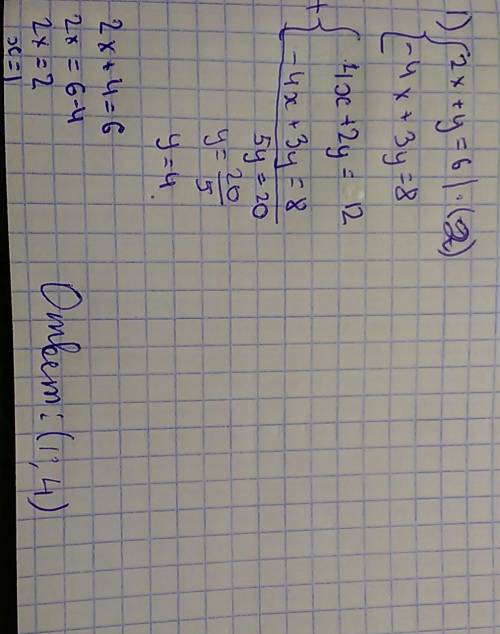 1) { 2x + y = 6 | · (2)
{ -4x + 3y = 8
+ { 4x + 2y = 12
{ -4x + 3y = 8
5y = 20
y = 20/5
y = 4.
2x + 4 = 6
2x = 6-4
2x = 2
x = 1
Ответ: (1; 4)